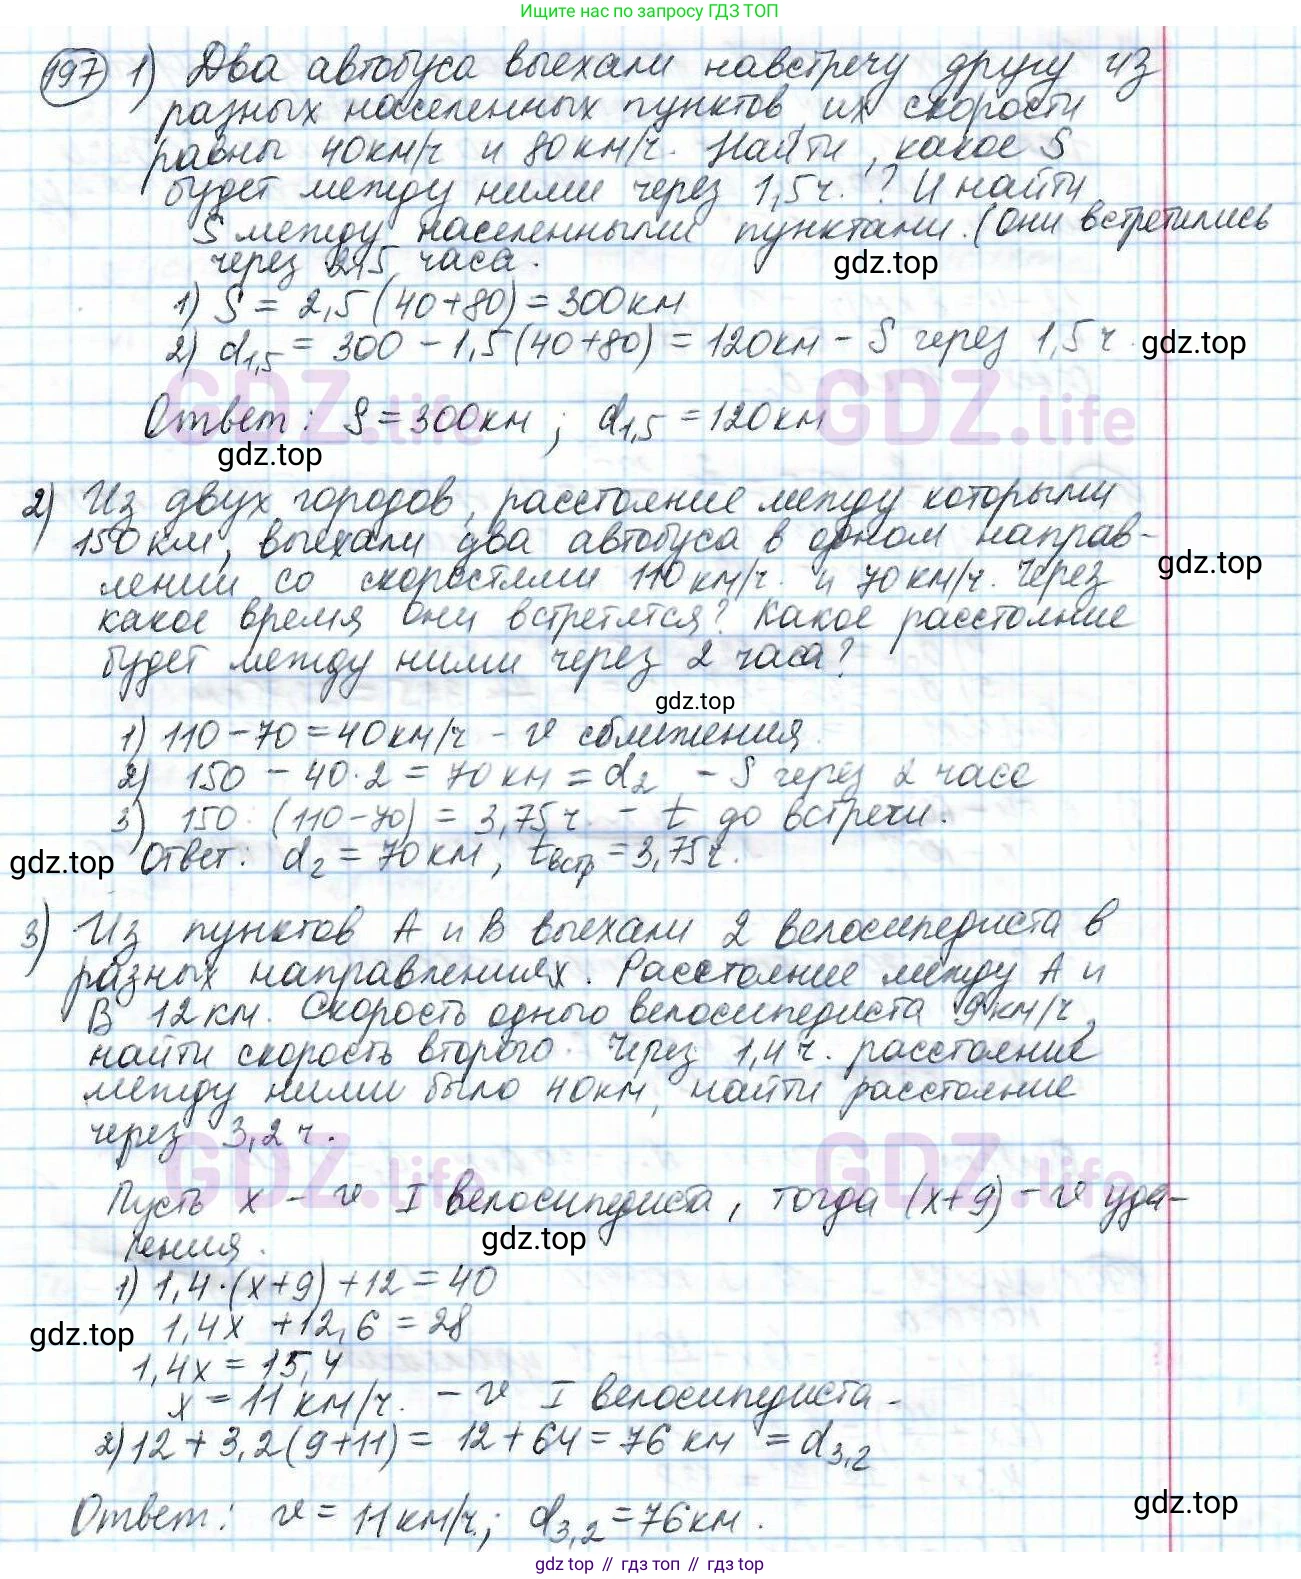 Ищите нас по запросу ГДЗ ТОП
197 1) Два автобуса выехали навстречу другу из
разных населенных пунктов, их скорости
равны 40км/ч и 80км/ч. Найти, какое S
будет между ними через 1,5ч.? И найти
S между населенными пунктами. (Они встретились
через 2,5 часа.
gdz.top
1) S = 2,5(40+80) = 300км
2) d1,5 = 300 - 1,5(40+80) = 120км - S через 1,5ч.
gdz.top
GDZ.life GDZ.life
Ответ: S = 300км; d1,5 = 120км
gdz.top
2) Из двух городов, расстояние между которыми
150км, выехали два автобуса в одном направ-
лении со скоростями 110км/ч. и 70км/ч. Через
gdz.top
какое время они встретятся? Какое расстояние
будет между ними через 2 часа?
gdz.top
1) 110-70=40км/ч - v сближения.
2) 150 - 40·2 = 70км = d2 - S через 2 часа
3) 150 : (110-70) = 3,75ч. - t до встречи.
gdz.top
Ответ: d2 = 70км, tвстр = 3,75ч.
3) Из пунктов А и В выехали 2 велосипедиста в
разных направлениях. Расстояние между А и
В 12км. Скорость одного велосипедиста 9км/ч,
найти скорость второго. Через 1,4ч. расстояние
между ними было 40км, найти расстояние
через 3,2ч.
GDZ.life GDZ.life
Пусть x - v I велосипедиста, тогда (x+9) - v уда-
ления.
gdz.top
1) 1,4·(x+9)+12=40
1,4x +12,6 = 28
gdz.top
1,4x = 15,4
x = 11 км/ч. - v I велосипедиста.
2) 12 + 3,2(9+11) = 12+64=76 км = d3,2
gdz.top
Ответ: v = 11км/ч; d3,2 = 76км.
gdz top // гдз топ // гдз top